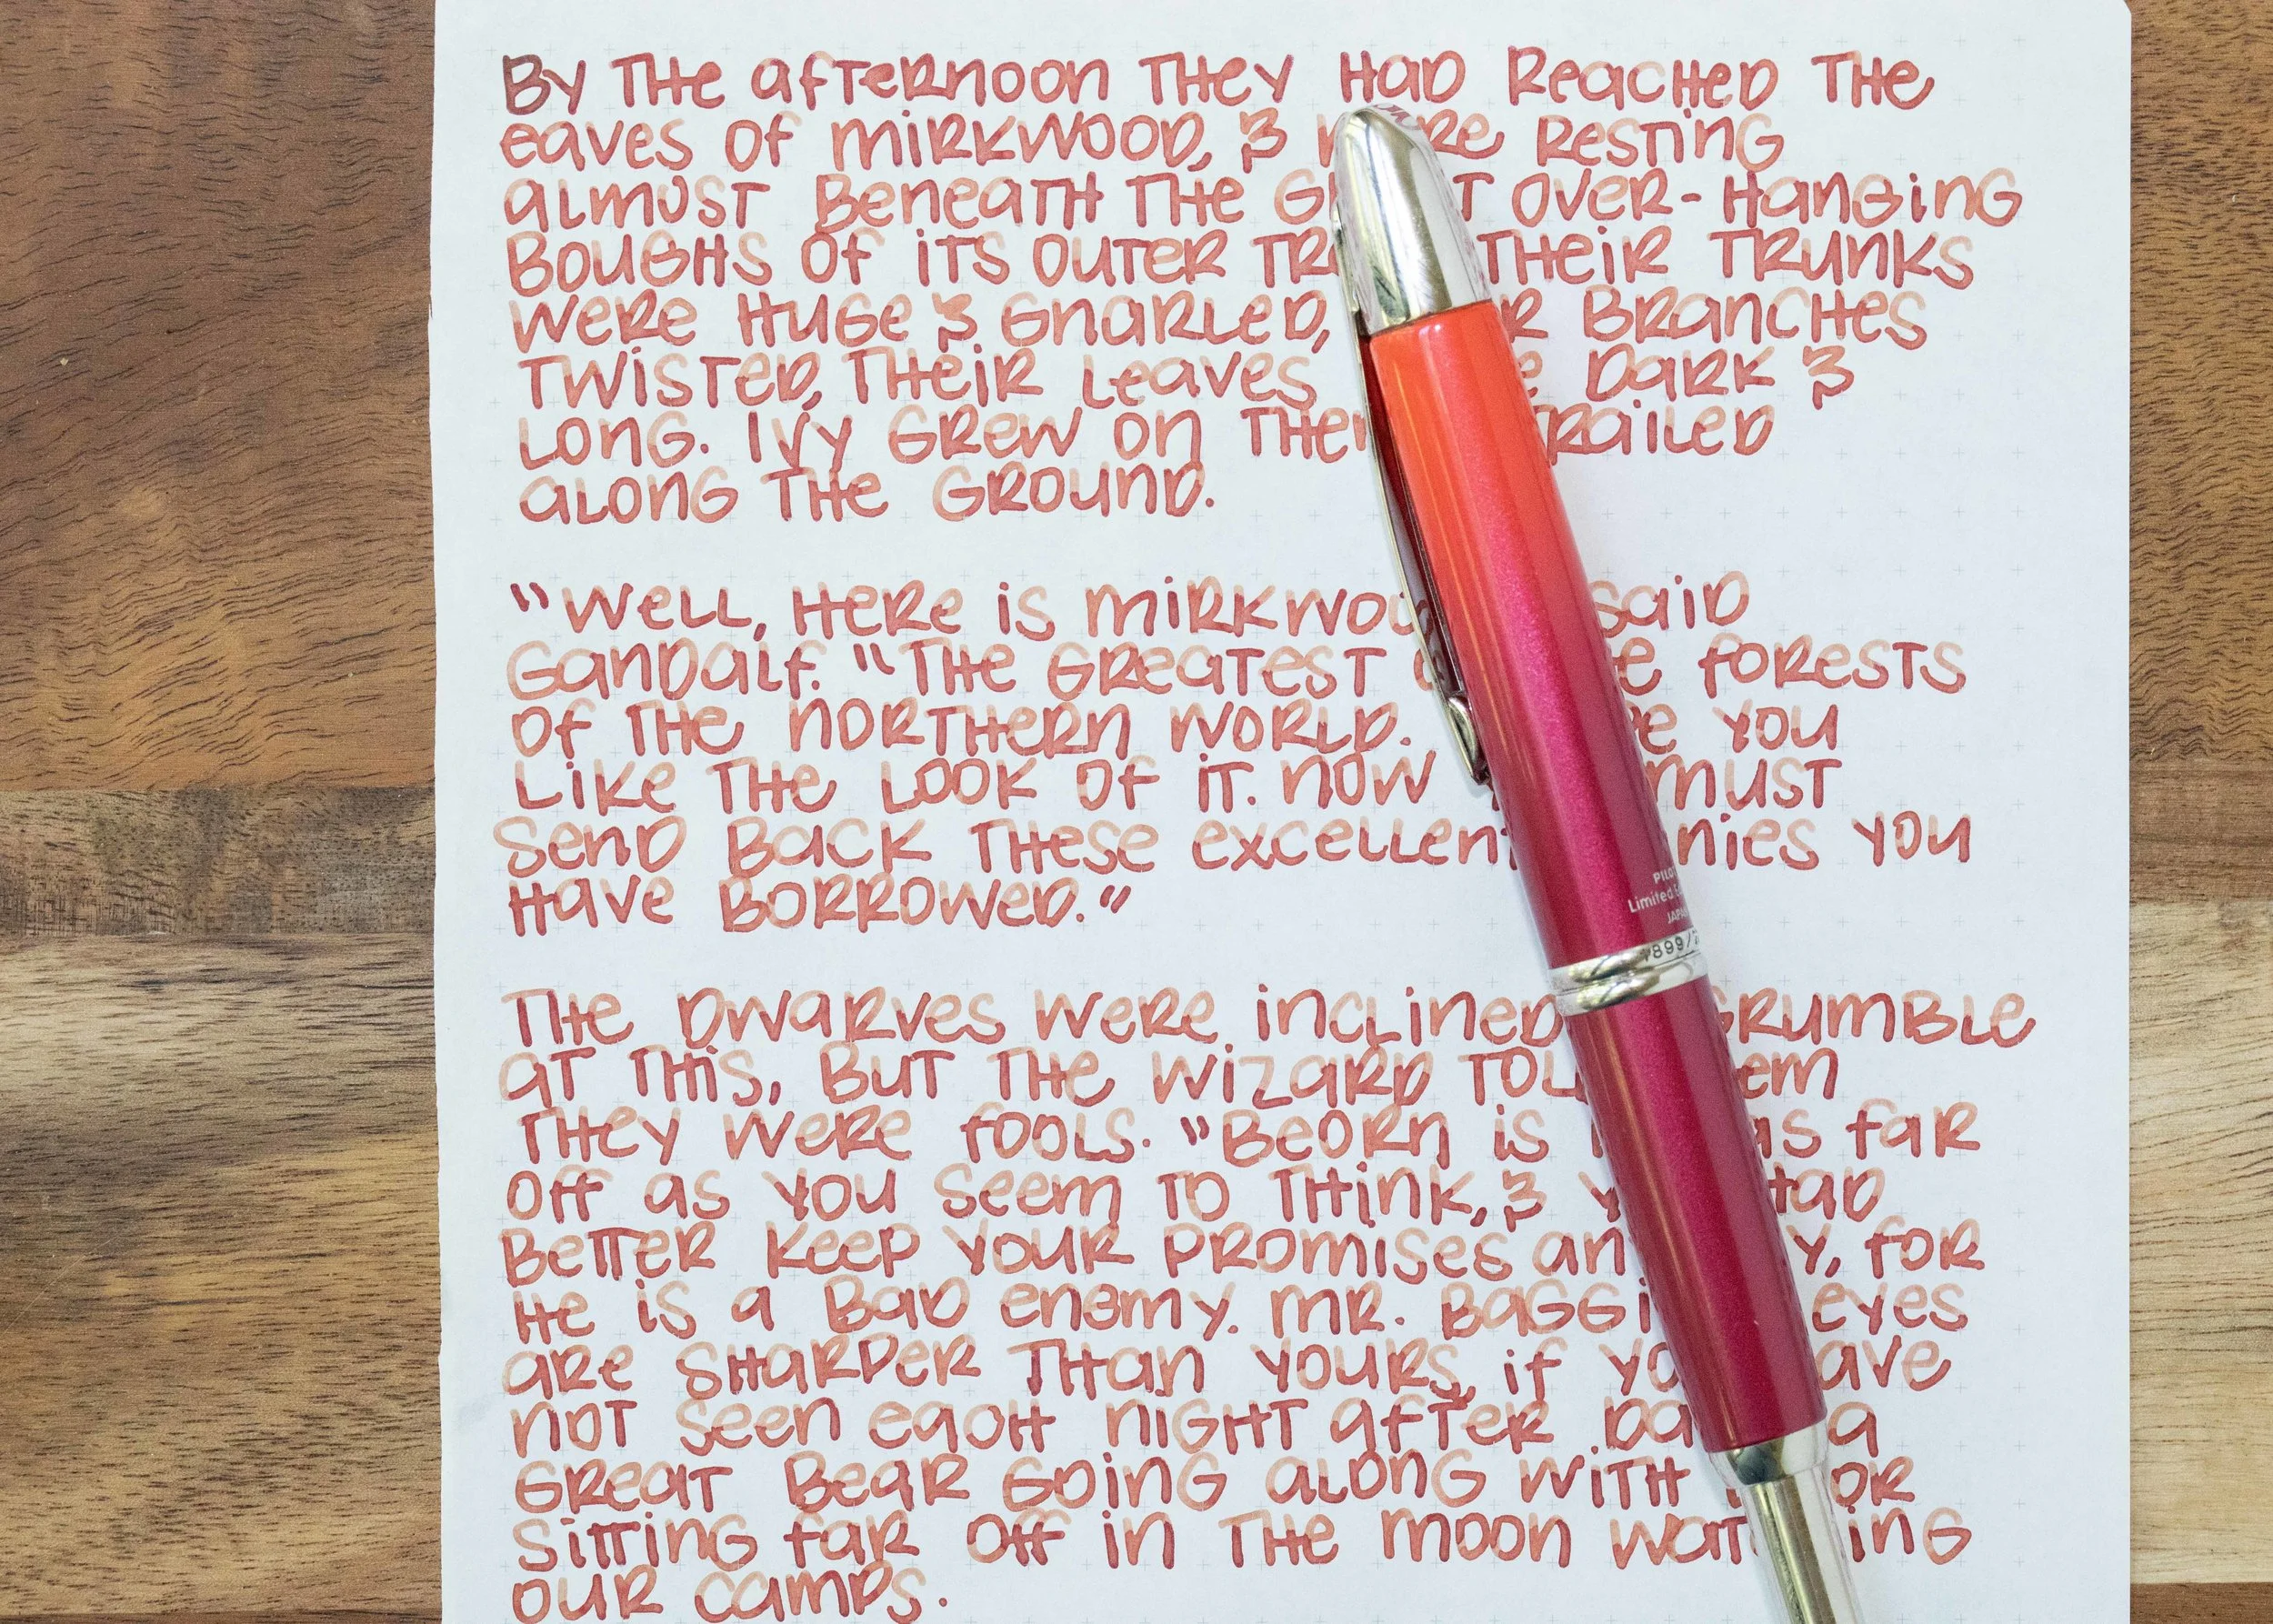 By the afternoon they had reached the
eaves of Mirkwood, & resting
almost beneath the over-hanging
boughs of its outer their trunks
were huge & gnarled, branches
twisted, their leaves dark &
long. Ivy grew on trailed
along the ground.
"Well, here is said
Gandalf. "The greatest forests
of the northern world. you
like the look of it. Now must
send back these you
have borrowed."
The dwarves were inclined grumble
at this, but the wizard
they were fools. "Beorn is as far
off as you seem to think, & had
better keep your promises for
he is a bad enemy. Mr. eyes
are sharper than yours, if
not seen each night after a
great bear going along with or
sitting far off in the moon
our camps.
Limited
JAPAN